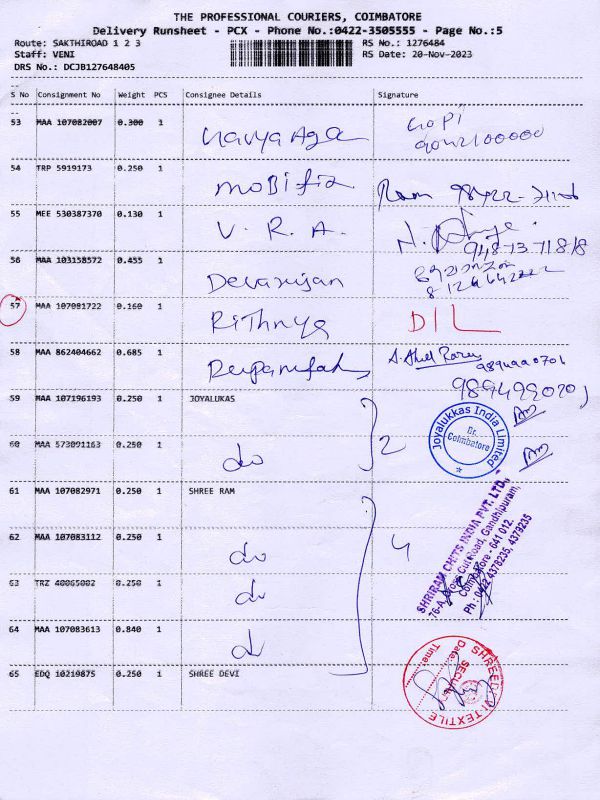 THE PROFESSIONAL COURIERS, COIMBATORE
Delivery Runsheet - PCX - Phone No.:0422-3505555 - Page No.:5
Route: SAKTHIROAD 1 2 3 RS No.: 1276484
Staff: VENI RS Date: 20-Nov-2023
DRS No.: DCJB127648405
S No Consignment No Weight PCS Consignee Details Signature
53 MAA 107082007 0.300 1 Gopi
54 TRP 5919173 0.250 1 mobifix Ram
55 MEE 530387370 0.130 1 V. R. A.
56 MAA 103158572 0.455 1 Devarajan
57 MAA 107081722 0.160 1 Rithnya DIL
58 MAA 862404662 0.685 1
59 MAA 107196193 0.250 1 JOYALUKAS
Joyalukkas India Limited
Br.
Coimbatore
60 MAA 573091163 0.250 1 do 2
61 MAA 107082971 0.250 1 SHREE RAM
62 MAA 107083112 0.250 1 do 4
SHRIRAM CHITS INDIA PVT. LTD.,
76-A, Cross Cut Road, Gandhipuram,
Coimbatore - 641 012.
Ph : 0422 4378235, 4379235
63 TRZ 40065082 0.250 1 do
64 MAA 107083613 0.840 1 do
65 EDQ 10219875 0.250 1 SHREE DEVI
SHREEDEVI TEXTILE
SECURITY
Date:
Time: